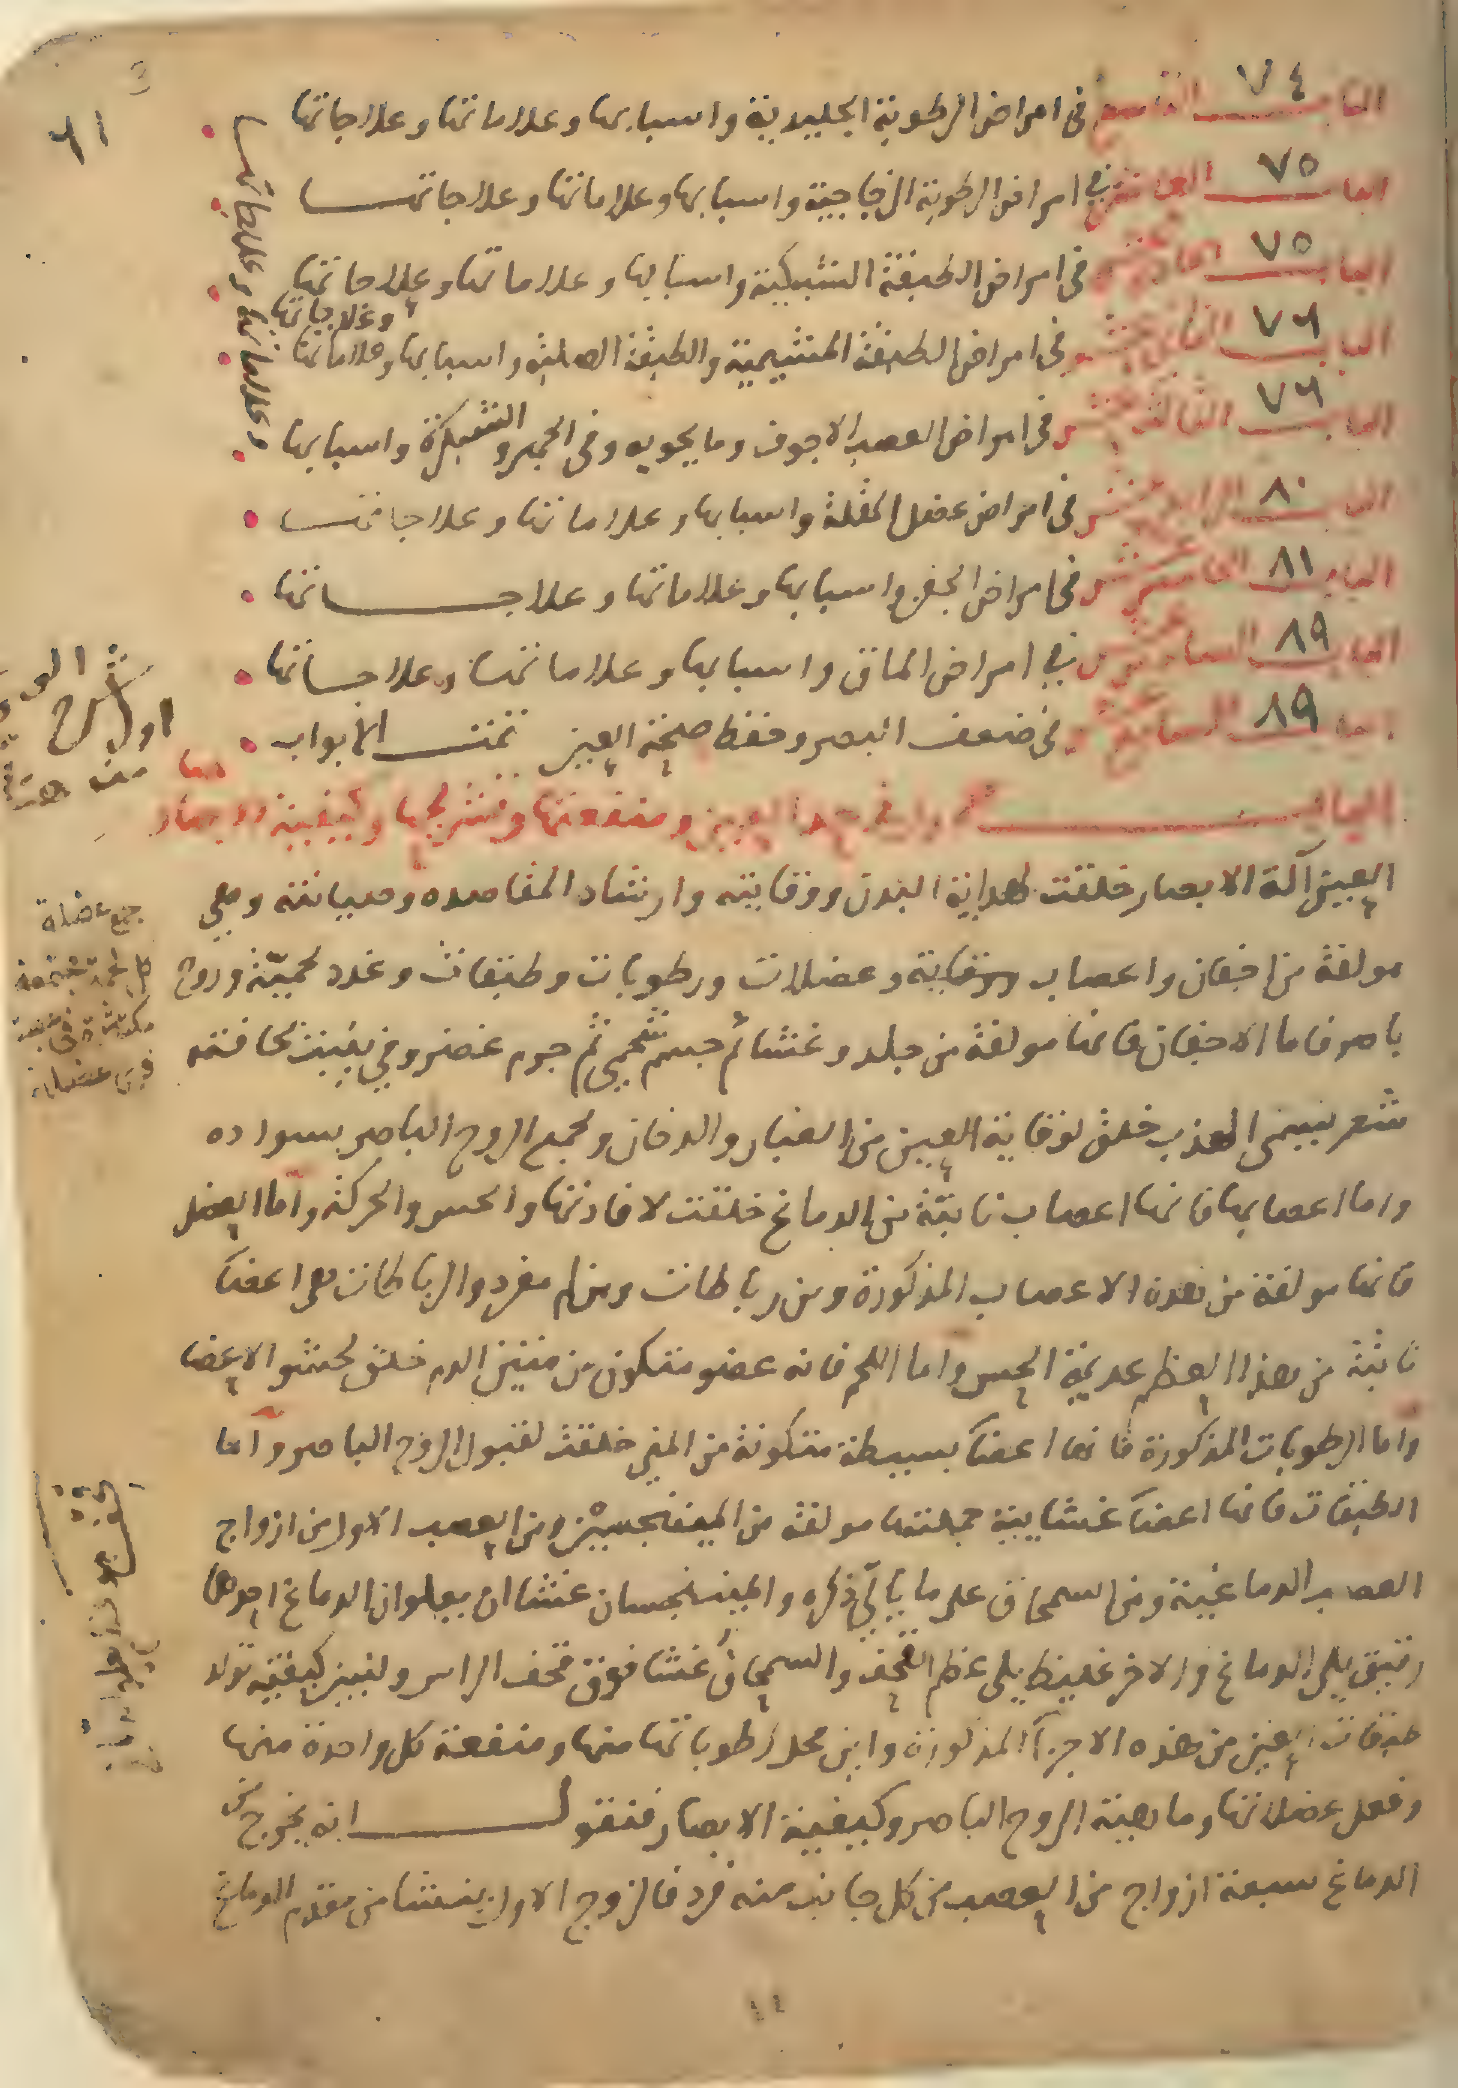 ٧٤
الباب التاسع في امراض الرطوبة الجليدية واسبابها وعلاماتها وعلاجاتها
٧٥
الباب العاشر في امراض الرطوبة الزجاجية واسبابها وعلاماتها وعلاجاتها
٧٥
الباب الحادي عشر في امراض الطبقة الشبكية واسبابها وعلاماتها وعلاجاتها
٧٦
الباب الثاني عشر في امراض الطبقة المشيمية والطبقة الصلبة واسبابها وعلاماتها وعلاجاتها
٧٦
الباب الثالث عشر في امراض العصب الاجوف وما يحويه وفي الجهر والشبكرة واسبابها
وعلاماتها وعلاجاتها
٨٠
الباب الرابع عشر في امراض عضل المقلة واسبابها وعلاماتها وعلاجاتها
٨١
الباب الخامس عشر في امراض الجفن واسبابها وعلاماتها وعلاجاتها
٨٩
الباب السادس عشر في امراض الماق واسبابها وعلاماتها وعلاجاتها
٨٩
الباب السابع عشر في ضعف البصر وحفظ صحة العين تمت الابواب
الباب الاول في حد العين ومنفعتها وتشريحها وكيفية الابصار
العين آلة الابصار خلقت لهداية البدن ووقايته وارشاد المقاصده وصيانته وهي
مولفة من اجفان واعصاب وعضلات ورطوبات وطبقات وغدد لحمية وروح
باصر فاما الاجفان فانها مولفة من جلد وغشا ثم جسم شحمي ثم جرم غضروفي ينبت بحافته
شعر يسمى الهدب خلق لوقاية العين من الغبار والدخان ولجمع الروح الباصر بسواده
واما اعصابها فانها اعصاب نابتة من الدماغ خلقت لافادتها والحس والحركة واما العضل
فانها مولفة من هذه الاعصاب المذكورة ومن رباطات ومن لحم مفرد والرباطات هي اعضا
نابتة من هذا العظم عديمة الحس واما اللحم فانه عضو متكون من متين الدم خلق لحشو الاعضا
واما الرطوبات المذكورة فانها اعضا بسيطة متكونة من المني خلقت لقبول الروح الباصر واما
الطبقات فانها اعضا غشايية جملتها مولفة من المينخجسيين ومن العصب الاول من ازواج
العصب الدماغية ومن السمحاق على ما ياتي ذكره والمينخجسان غشاان يعلوان الدماغ احدهما
رقيق يلي الدماغ والاخر غليظ يلي عظم القحف والسمحاق غشا فوق قحف الراس ولنبين كيفية تولد
طبقات العين من هذه الاجزا المذكورة واين محل رطوباتها منها ومنفعة كل واحدة منها
وفعل عضلاتها وماهية الروح الباصر وكيفية الابصار فنقول انه يخرج من
الدماغ سبعة ازواج من العصب من كل جانب منه فرد فالزوج الاول ينشا من مقدم الدماغ
٦١
اول الشرح
من هنا
جمع عضلة
كل لحمة مجتمعة
مكتنزة في عصبة
فهي عضلة
١١